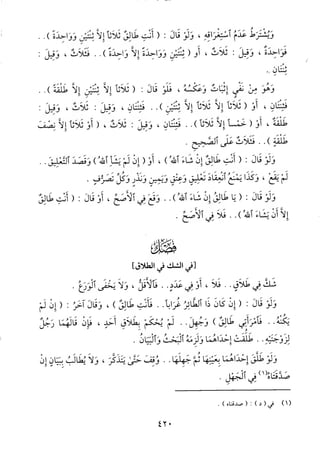 وَيُشْتَرَطُ عَدَمُ اسْتِغْرَاقِهِ ، وَلَوْ قَالَ : ( أَنْتِ طَالِقٌ ثَلَاثاً إِلَّا ثِنْتَيْنِ وَوَاحِدَةً ) . .
فَوَاحِدَةٌ ، وَقِيلَ : ثَلَاثٌ ، أَوِ ( ثِنْتَيْنِ وَوَاحِدَةً إِلَّا وَاحِدَةً ) . . فَثَلَاثٌ ، وَقِيلَ :
ثِنْتَانِ .
وَهُوَ مِنْ نَفْيٍ إِثْبَاتٌ وَعَكْسُهُ ، فَلَوْ قَالَ : ( ثَلَاثاً إِلَّا ثِنْتَيْنِ إِلَّا طَلْقَةً ) . .
فَثِنْتَانِ ، أَوْ ( ثَلَاثاً إِلَّا ثَلَاثاً إِلَّا ثِنْتَيْنِ ) . . فَثِنْتَانِ ، وَقِيلَ : ثَلَاثٌ ، وَقِيلَ :
طَلْقَةٌ ، أَوْ ( خَمْساً إِلَّا ثَلَاثاً ) . . فَثِنْتَانِ ، وَقِيلَ : ثَلَاثٌ ، ( أَوْ ثَلَاثاً إِلَّا نِصْفَ
طَلْقَةٍ ) . . فَثَلَاثٌ عَلَى الصَّحِيحِ .
وَلَوْ قَالَ : ( أَنْتِ طَالِقٌ إِنْ شَاءَ اللهُ ) ، أَوْ ( إِنْ لَمْ يَشَأِ اللهُ ) وَقَصَدَ التَّعْلِيقَ . .
لَمْ يَقَعْ ، وَكَذَا يَمْنَعُ انْعِقَادَ تَعْلِيقٍ وَعِتْقٍ وَيَمِينٍ وَنَذْرٍ وَكُلِّ تَصَرُّفٍ .
وَلَوْ قَالَ : ( يَا طَالِقُ إِنْ شَاءَ اللهُ ) . . وَقَعَ فِي الْأَصَحِّ ، أَوْ قَالَ : ( أَنْتِ طَالِقٌ
إِلَّا أَنْ يَشَاءَ اللهُ ) . . فَلَا فِي الْأَصَحِّ .
فَصْلٌ
[في الشك في الطلاق]
شَكَّ فِي طَلَاقٍ . . فَلَا ، أَوْ فِي عَدَدٍ . . فَالْأَقَلُّ ، وَلَا يَخْفَى الْوَرَعُ .
وَلَوْ قَالَ : ( إِنْ كَانَ ذَا الطَّائِرُ غُرَاباً . . فَأَنْتِ طَالِقٌ ) ، وَقَالَ آخَرُ : ( إِنْ لَمْ
يَكُنْهُ . . فَامْرَأَتِي طَالِقٌ ) وَجُهِلَ . . لَمْ يُحْكَمْ بِطَلَاقِ أَحَدٍ ، فَإِنْ قَالَهُمَا رَجُلٌ
لِزَوْجَتَيْهِ . . طَلَقَتْ إِحْدَاهُمَا وَلَزِمَهُ الْبَحْثُ وَالْبَيَانُ .
وَلَوْ طَلَّقَ إِحْدَاهُمَا بِعَيْنِهَا ثُمَّ جَهِلَهَا . . وُقِفَ حَتَّى يَتَذَكَّرَ ، وَلَا يُطَالَبُ بِبَيَانٍ إِنْ
صَدَّقَتَاهُ(١) فِي الْجَهْلِ .
(١) في ( د ) : ( صدقتاه ) .
٤٢٠